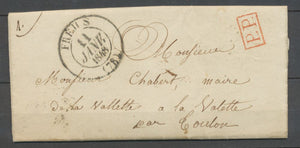 A.
FREJUS
11
JANV.
1848
(78)
P.P.
Monsieur
Monsieur Chabert, maire
de la Vallette à la Valette
par Toulon